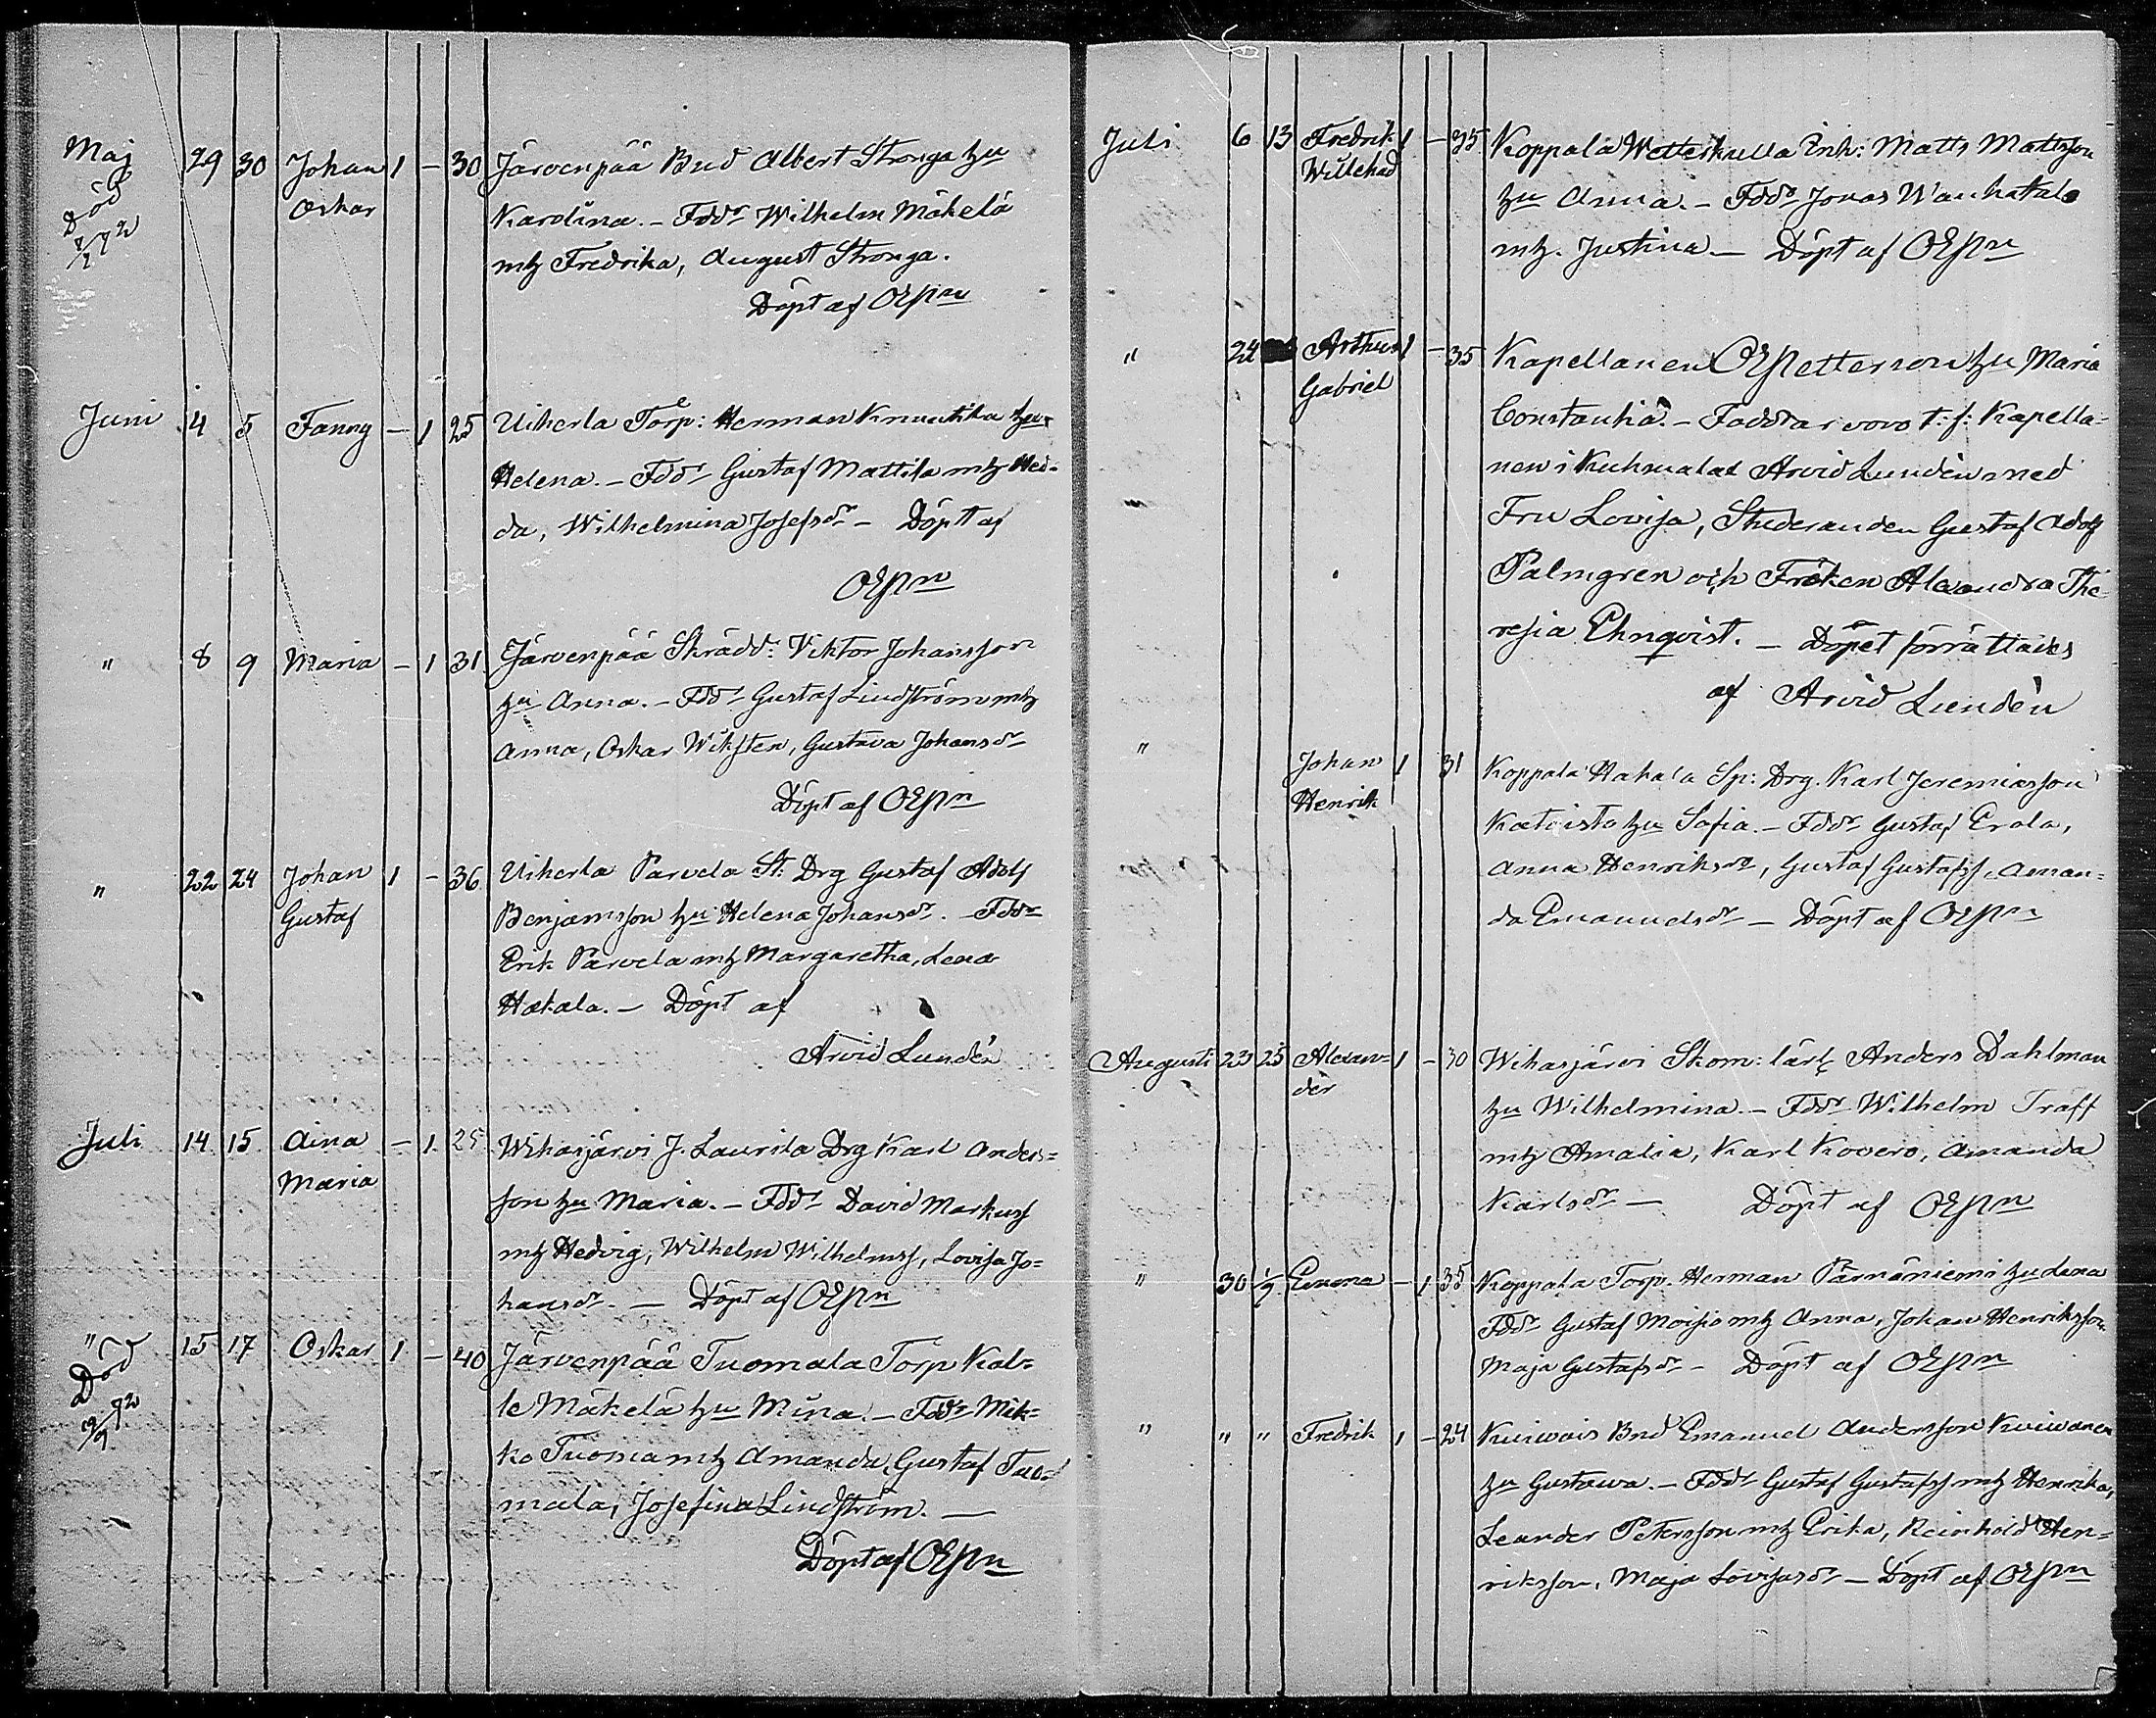 Maj 29 30 Johan 1 - 30 Järvenpää Bnd Albert Stronga hu
Död Oskar Karolina. - Fddr Wilhelm Mäkelä
mh Fredrika, August Stronga.
Döpt af OEPn
Juni 4 5 Fanny - 1 25 Uiherla Torp: Herman Knuutila hu
Helena. - Fddr Gustaf Mattila mh Hed-
da, Wilhelmina Josefsdr - Döpt af
OEPn
" 8 9 Maria - 1 31 Järvenpää Skrädd: Viktor Johansson
hu Anna. - Fddr Gustaf Lindström mh
Anna, Oskar Wiksten, Gustava Johansdr
Döpt af OEPn
" 22 24 Johan 1 - 36 Uiherla Parvela St: Drg Gustaf Adolf
Gustaf Benjamsson hu Helena Johansdr. - Fddr
Erik Parvela mh Margaretha, Lena
Hakala. - Döpt af
Arvid Lundén
Juli 14 15 Aina - 1 25 Wihasjärvi J. Laurila Drg Karl Anders=
Maria son hu Maria. - Fddr David Markuss
mh Hedvig, Wilhelm Wilhelmss, Lovisa Jo=
hansdr. - Döpt af OEPn
" 15 17 Oskar 1 - 40 Järvenpää Tuomala Torp Kal=
Död le Mäkelä hu Mina. - Fddr Mik=
ko Tuoma mh Amanda, Gustaf Tuo=
mala, Josefina Lindström. -
Döpt af OEPn
Juli 6 13 Fredrik 1 - 35 Koppala Wetterkulla Enh: Matts Mattsson
Willehad hu Anna. - Fddr Jonas Wanhatalo
mh. Justina - Döpt af OEPn
" 24 Arthur 1 - 35 Kapellanen OEPetterson hu Maria
Gabriel Constantia. - Faddrar voro t: f: Kapella=
nen i Kuhmalax Arvid Lundén med
Fru Lovisa, Studeranden Gustaf Adolf
Palmgren och Fröken Alexandra The=
resia Ehnqvist. - Döpet förrättades
af Arvid Lundén
" Johan 1 31 Koppala Hakala Sp: Drg. Karl Jeremiasson
Henrik Katoisto hu Sofia. - Fddr Gustaf Erola,
Anna Henriksdr, Gustaf Gustafss, Aman=
da Emanuelsdr - Döpt af OEPn
Augusti 23 25 Alexan= 1 - 30 Wihasjärvi Skom: lärl Anders Dahlman
der hu Wilhelmina. - Fddr Wilhelm Träff
mh Amalia, Karl Kovero, Amanda
Karlsdr - Döpt af OEPn
" 30 1/9 Emma - 1 35 Koppala Torp. Herman Pärnäniemi hu Lena
Fddr Gustaf Moisio mh Anna, Johan Henriksson
Maja Gustafsdr - Döpt af OEPn
" " " Fredrik 1 - 24 Kuiwais Bnd Emanuel Andersson Kuiwanen
hu Gustawa. - Fddr Gustaf Gustafss mh Henrika,
Leander Petersson mh Erika, Reinhold Hen=
riksson, Maja Lovisasdr - Döpt af OEPn